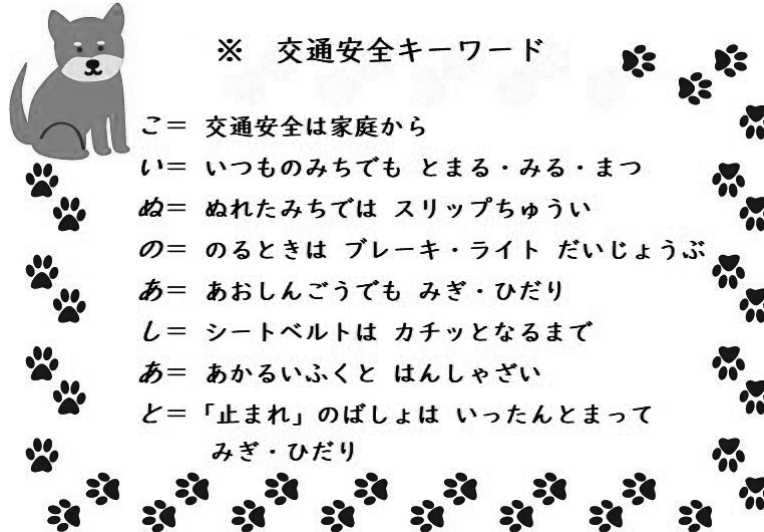 ※ 交通安全キーワード
こ＝ 交通安全は家庭から
い＝ いつものみちでも とまる・みる・まつ
ぬ＝ ぬれたみちでは スリップちゅうい
の＝ のるときは ブレーキ・ライト だいじょうぶ
あ＝ あおしんごうでも みぎ・ひだり
し＝ シートベルトは カチッとなるまで
あ＝ あかるいふくと はんしゃざい
と＝「止まれ」のばしょは いったんとまって
みぎ・ひだり